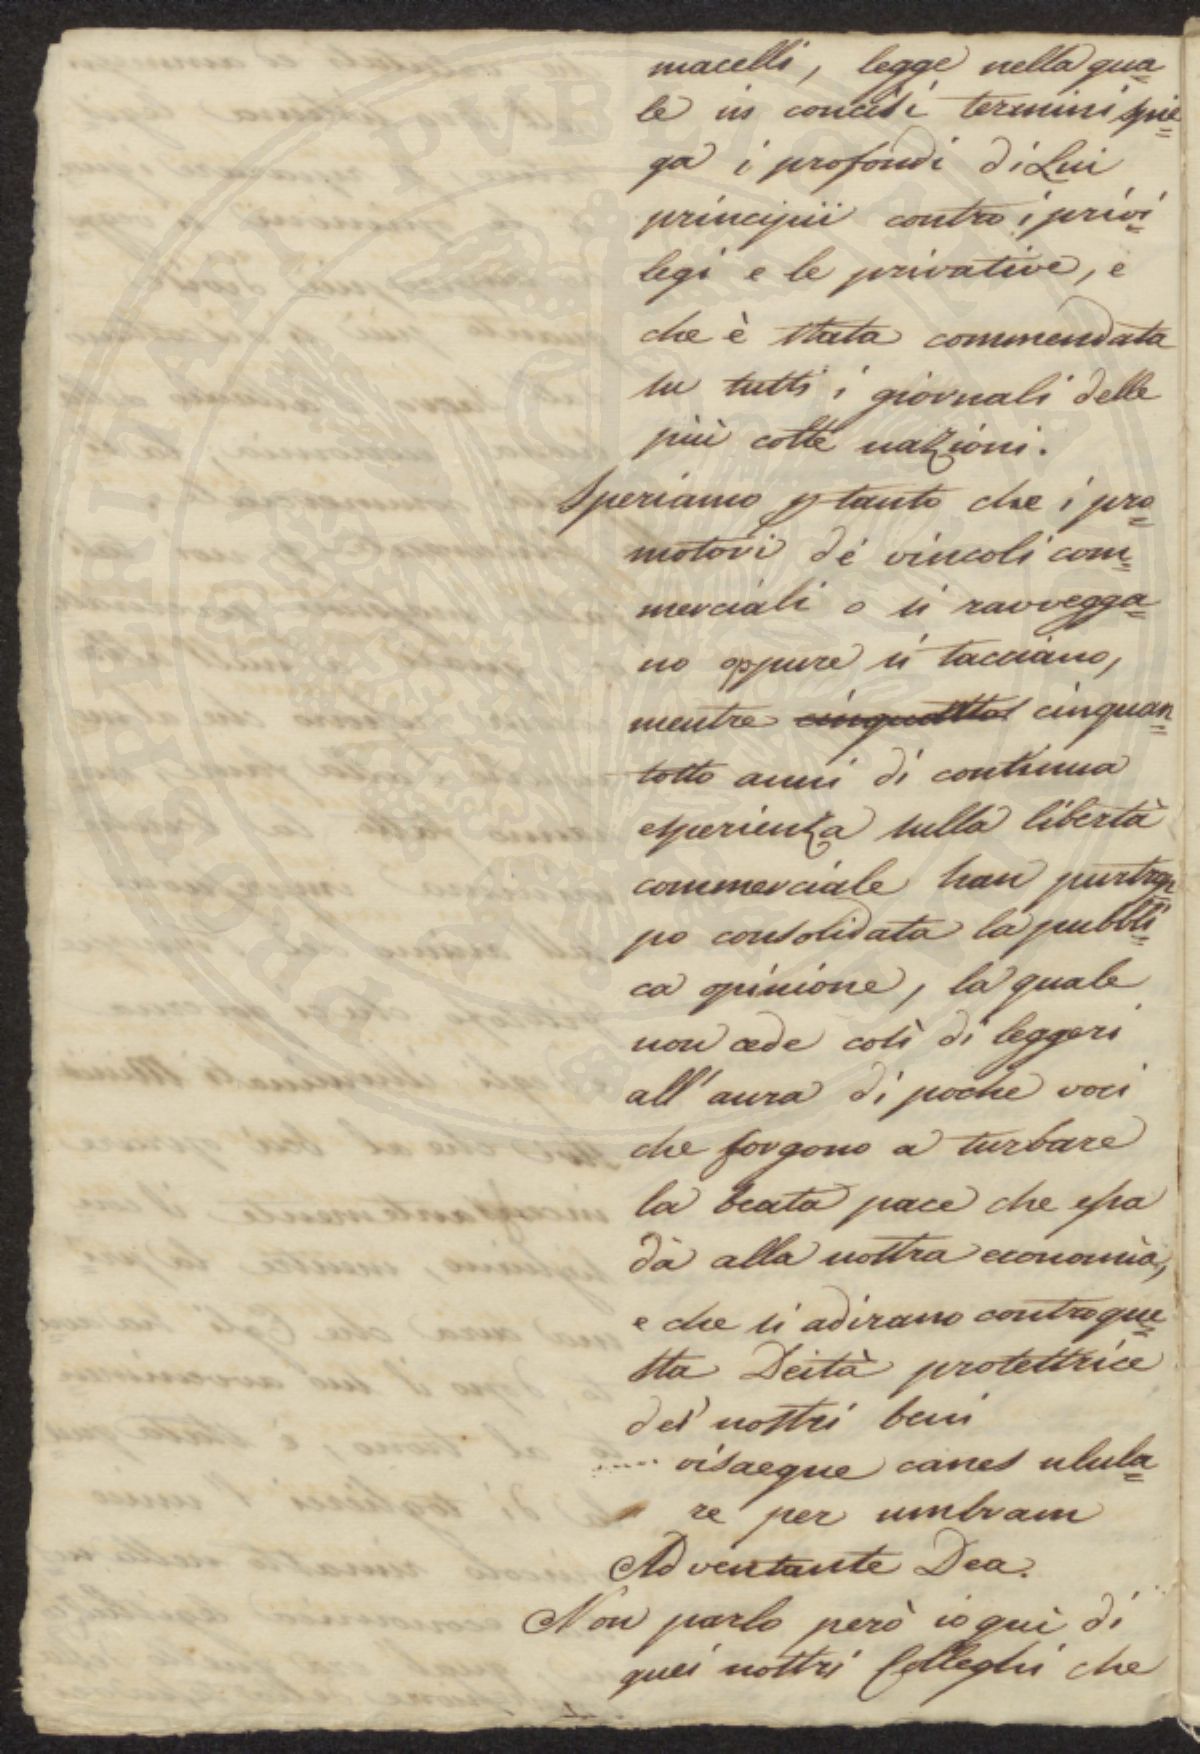 macelli, legge nella qua-
le in concisi termini spie=
ga i profondi di Lui
principii contro i privi=
legi e le privative, e
che è stata commendata
su tutti i giornali delle
più colte nazioni.
Speriamo ptanto che i pro=
motori de' vincoli com=
merciali o si ravvegga=
no oppure si tacciano,
mentre cinquan=
totto anni di continua
esperienza sulla libertà
commerciale han purtrop=
po consolidata la pubbli=
ca opinione, la quale
non cede così di leggeri
all'aura di poche voci
che sorgono a turbare
la beata pace che essa
dà alla nostra economia,
e che si adirano contro que=
sta Deità protettrice
dei nostri beni
..... visaeque canes ulula=
re per umbram
Adventante Dea.
Non parlo però io quì di
quei nostri Colleghi che
PROSPERITATI PUBLICAE